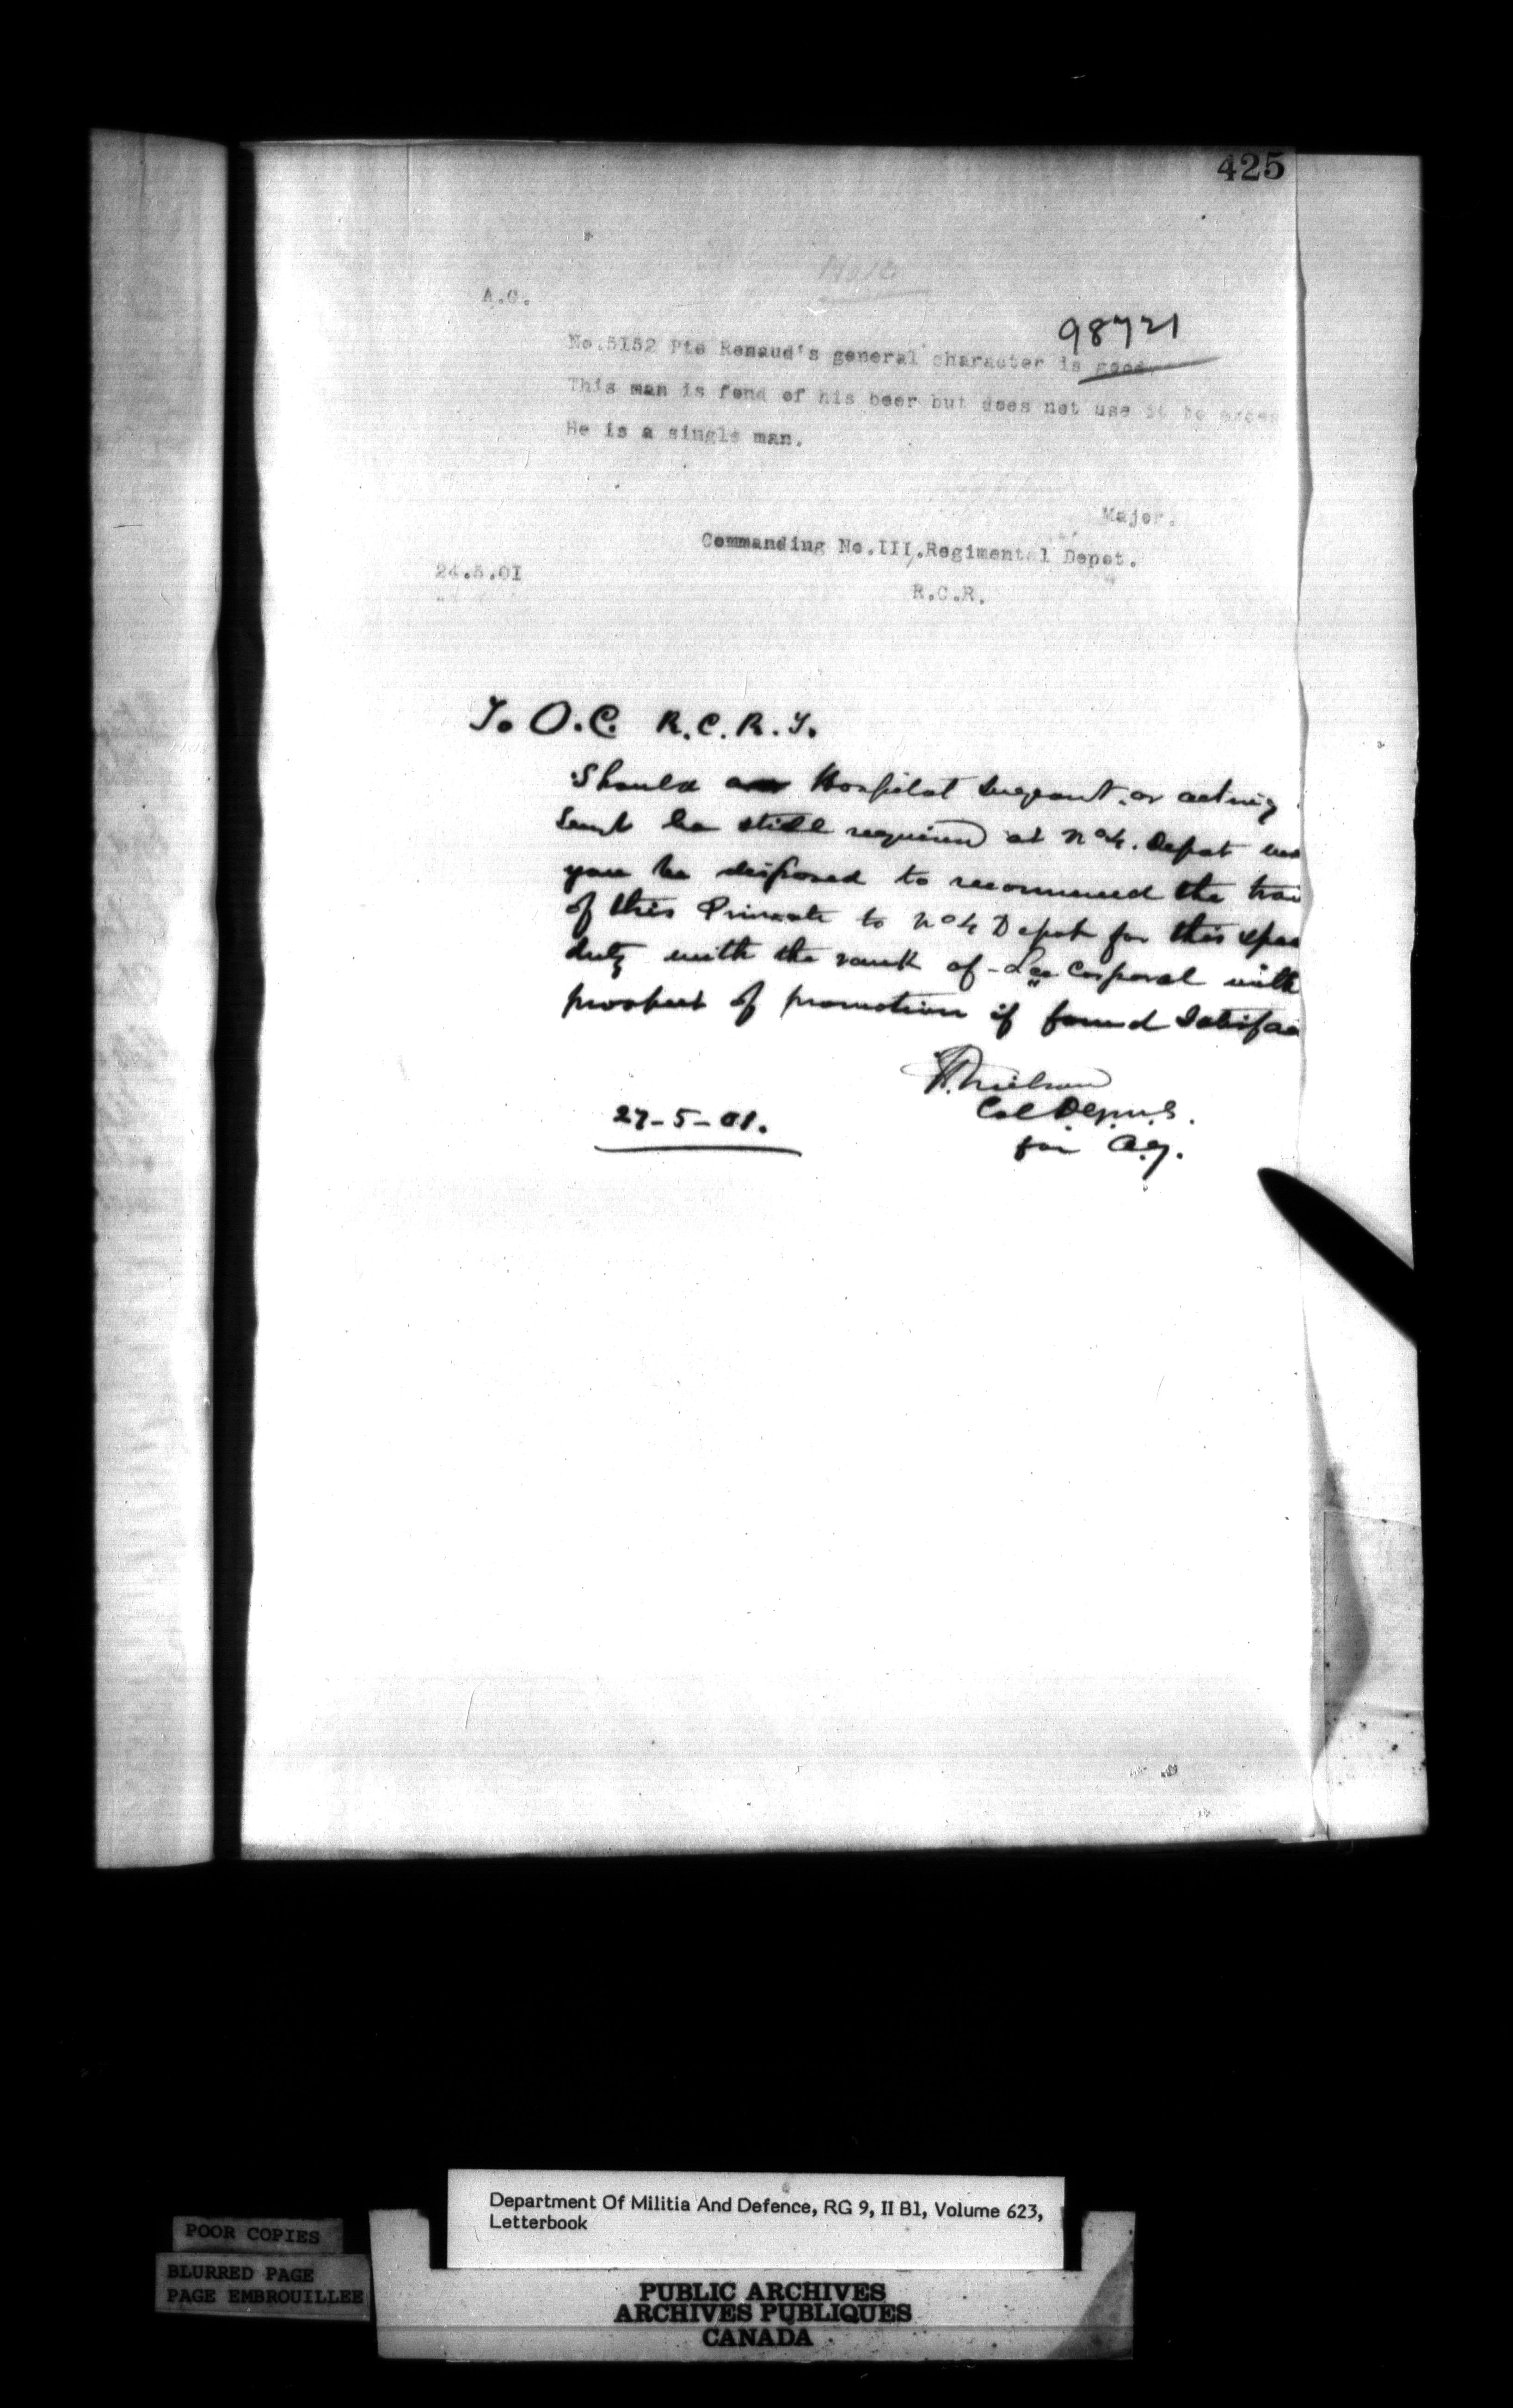 425
Note
A.G.
98721
No.5152 Pte Renaud's general character is good.
This man is fond of his beer but does not use it to exces
He is a single man.
Major.
Commanding No.III.Regimental Depot.
24.5.01
R.C.R.
To O.C. R.C.R.I.
Should an Hospital Sergeant or acting
Sergt be still required at No 4. Depot wo
you be disposed to recommend the tran
of this Private to No 4 Depot for this spec
duty with the rank of Lce Corporal with
prospect of promotion if found Satisfac
Neilson
Col D.G.M.S.
27-5-01.
for A.G.
Department Of Militia And Defence, RG 9, II B1, Volume 623,
Letterbook
POOR COPIES
BLURRED PAGE
PAGE EMBROUILLEE
PUBLIC ARCHIVES
ARCHIVES PUBLIQUES
CANADA